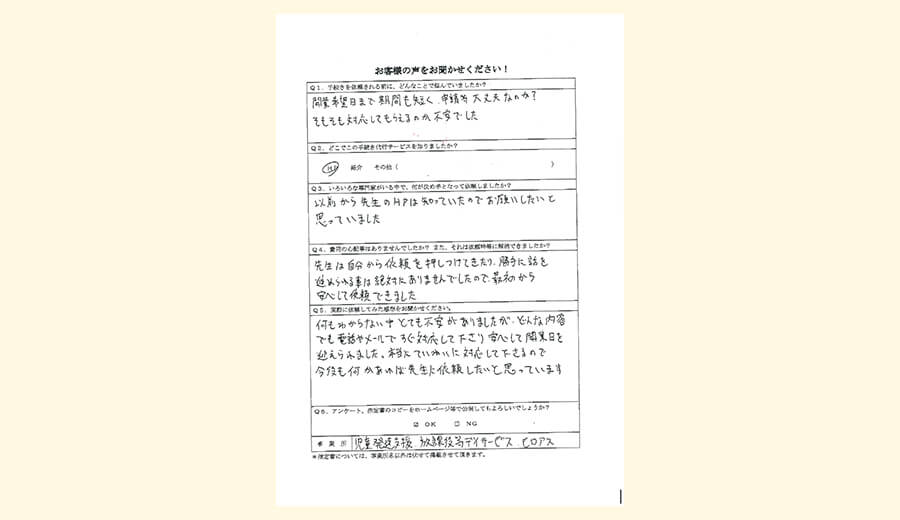 お客様の声をお聞かせください!
Q1、手続きを依頼される前に、どんなことで悩んでいましたか?
開業希望日まで期間も短く、申請等大丈夫なのか?
そもそも対応してもらえるのか不安でした
Q2、どこでこの手続き代行サービスを知りましたか?
HP 紹介 その他( )
Q3、いろいろな専門家がいる中で、何が決め手となって依頼しましたか?
以前から先生のHPは知っていたのでお願いしたいと
思っていました
Q4、費用の心配事はありませんでしたか? また、それは依頼時等に解消できましたか?
先生は自分から依頼を押しつけてきたり、勝手に話を
進められる事は絶対にありませんでしたので、最初から
安心して依頼できました
Q5、実際に依頼してみた感想をお聞かせください。
何もわからない中とても不安がありましたが、どんな内容
でも電話やメールですぐ対応して下さり安心して開業日を
迎えられました。本当にていねいに対応して下さるので
今後も何かあれば先生に依頼したいと思っています
Q6、アンケート、推定書のコピーをホームページ等で公開してもよろしいでしょうか?
☑ OK □ NG
事業所 児童発達支援 放課後等デイサービス ヒロアス
*推定書については、事業所名以外は伏せて掲載させて頂きます。